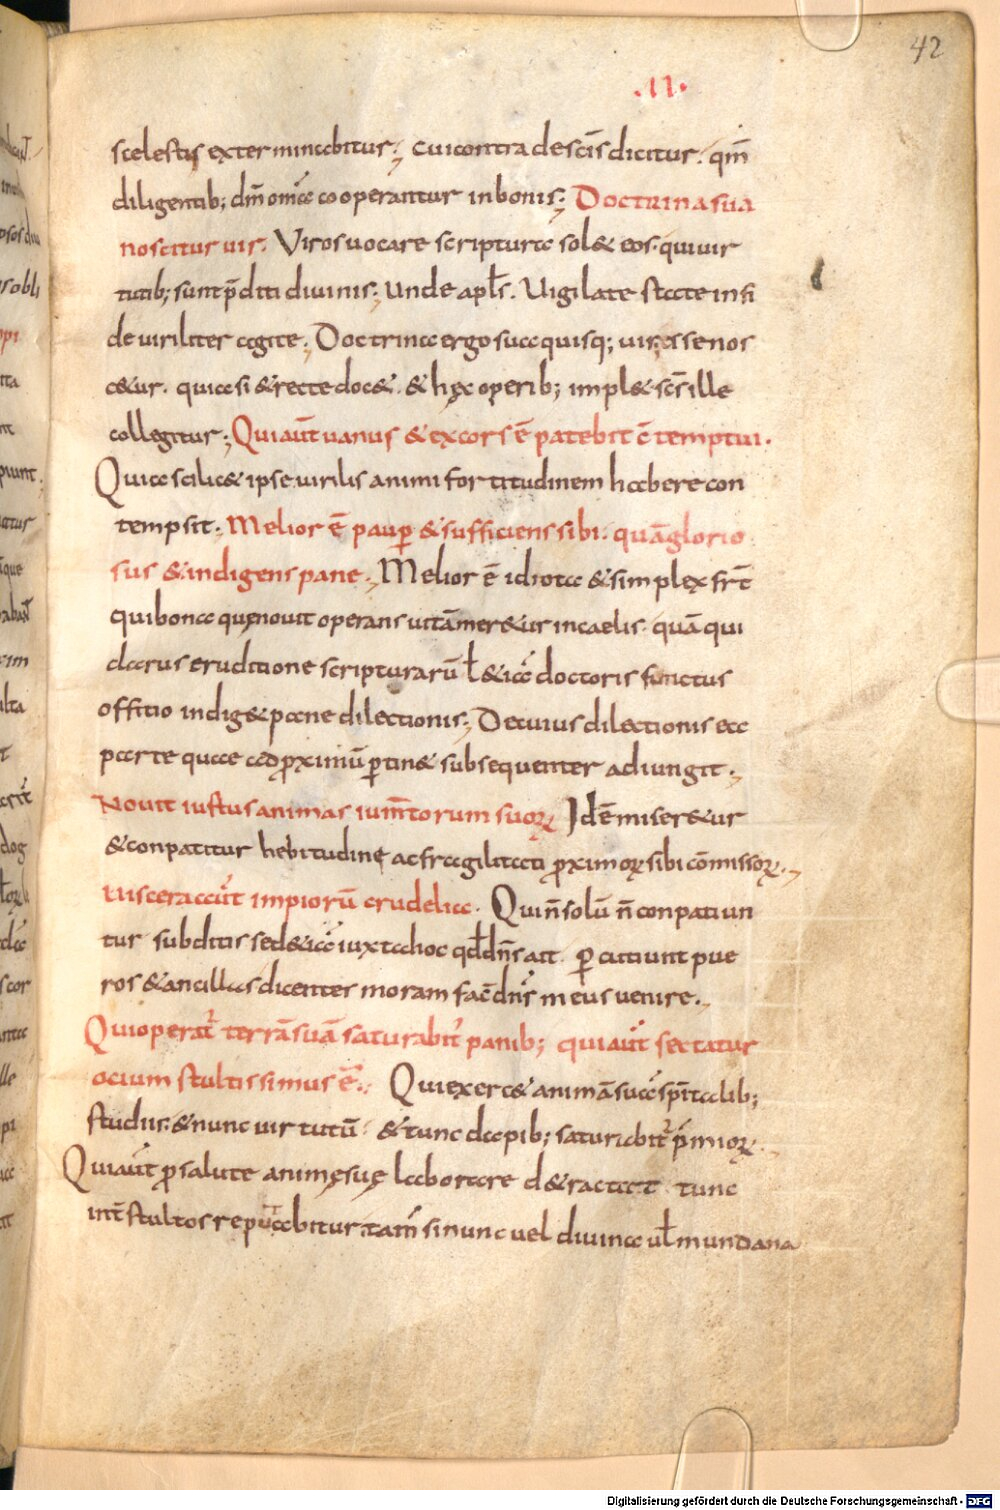 42
.II.
scelestis exterminabitur; cui contra de sc̄is dicitur. qm̄
diligentib; dm̄ om̄a cooperantur in bonis; Doctrina sua
noscitur uir. Viros uocare scriptura sol& eos. qui uir
tutib; sunt p̄diti diuinis; unde apl̄s. Uigilate state in fi
de uiriliter agite; Doctrina ergo sua quisq; uir esse nos
c&ur. quia si & recte doc&. & hęc operib; impl& sc̄s ille
collegitur; Qui aūt uanus & excors ē patebit c̄temptui.
Quia scilic& ipse uirilis animi fortitudinem habere con
tempsit. Melior ē paup̱ & sufficiens sibi. quā glorio
sus & indigens pane. Melior ē idiota & simplex fr̄t
qui bona quę nouit operans uitā mer&ur in caelis. quā qui
clarus eruditione scripturarū ł &iā doctoris functus
offitio indig& pane dilectionis; De cuius dilectionis ea
parte quae ad ꝓximū ꝑtin& subsequenter adiungit.
Nouit iustus animas ium̄torum suoꝝ Idē miser&ur
& conpatitur hebitudinę ac fragilitati ꝓximoꝝ sibi cōmissoꝝ.
uiscera aūt impiorū crudelia. Qui n̄ solū n̄ conpatiun
tur subditis sed &iā iuxta hoc qd̄ dn̄s ait. ꝑcutiunt pue
ros & ancillas dicentes moram fac̄ dn̄s meus uenire.
Qui operat̄ terrā suā saturabit̄ panib; qui aūt sectatur
ocium stultissimus ē. Qui exerc& animā suā sp̄italib;
studiis. & nunc uirtutū & tunc dapib; saturabit̄ p̄mioꝝ.
Qui aūt ꝓ salute animę suę laborare d&ractat tunc
int̄ stultos reputabitur. tam̄ si nunc uel diuina ul̄ mundana
Digitalisierung gefördert durch die Deutsche Forschungsgemeinschaft - DFG